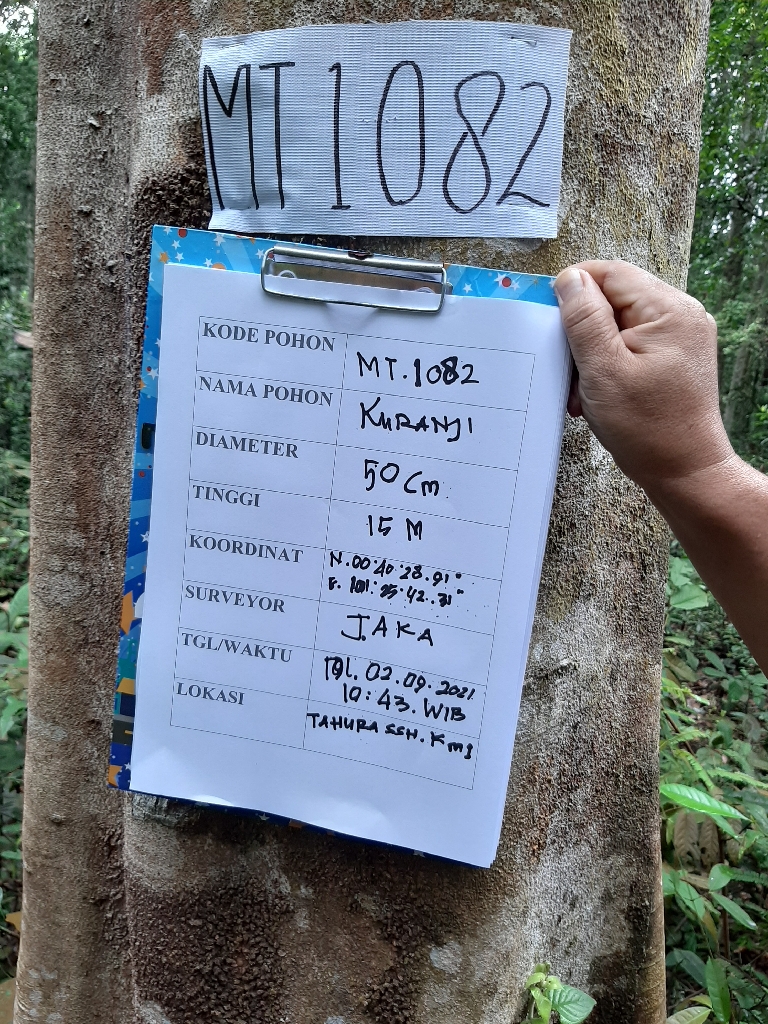 MT 1082
KODE POHON MT.1082
NAMA POHON KURANJI
DIAMETER 50 Cm
TINGGI 15 M
KOORDINAT N.00°40'28.91"
E. 101° 42.31"
SURVEYOR JAKA
TGL/WAKTU TGl. 02.09.2021
10:43. WIB
LOKASI TAHURA SSH.